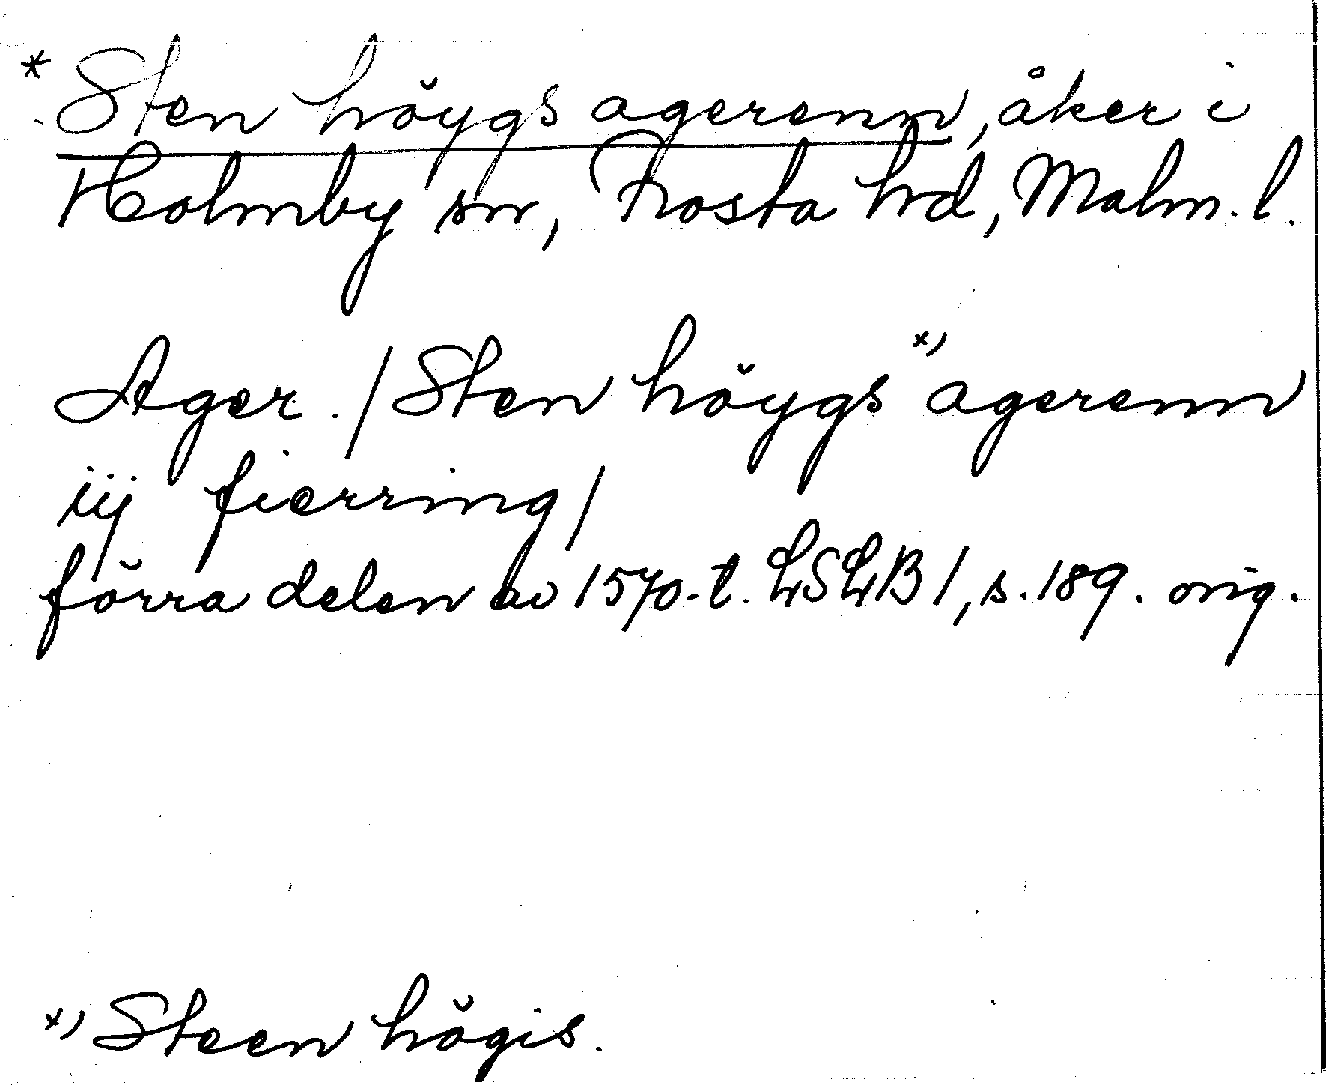 * Sten höygs agerenn, åker i
Holmby sn, Frosta hd, Malm. l.
Ager. / Sten höygs *) agerenn
iij fierring /
förra delen av 1570-t. LSLB 1, s. 189. orig.
*) Steen högis.